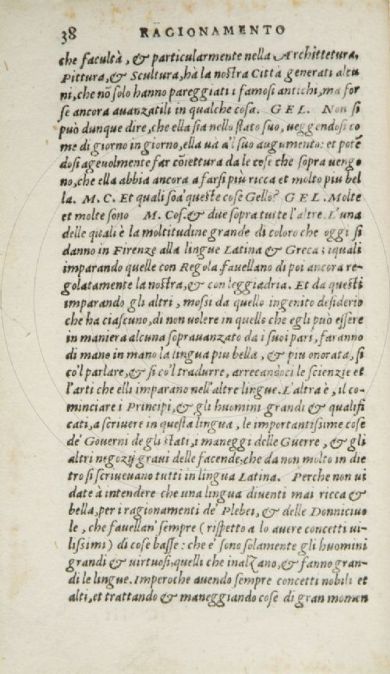 38 RAGIONAMENTO
che facultà, & particularmente nella Architettura,
Pittura, & Scultura, hà la nostra Città generati alcu
ni, che nõ solo hanno pareggiati i famosi antichi, ma for
se ancora auanzatili in qualche cosa. GEL. Non si
può dunque dire, che ella sia nello stato suo, ueggendosi co
me di giorno in giorno, ella ua a'l suo augumento: et potẽ
dosi ageuolmente far cõiettura da le cose che sopra uengo
no, che ella abbia ancora a farsi più ricca et molto piu bel
la. M. C. Et quali sõ a' queste cose Gello? GEL. Molte
et molte sono M. Cos. & due sopra tutte l'altre. L'una
delle quali è la moltitudine grande di coloro che oggi si
danno in Firenze alla lingue Latina & Greca; i quali
imparando quelle con Regola fauellano di poi ancora re-
golatamente la nostra, & con leggiadria. Et da questi
imparando gli altri, mossi da quello ingenito desiderio
che ha ciascuno, di non volere in quello che egli può essere
in maniera alcuna soprauanzato da i suoi pari, faranno
di mano in mano la lingua piu bella, & piu onorata, si
co'l parlare, & si co'l tradurre, arrecandoci le scienzie et
l'arti che elli imparano nell'altre lingue. L'altra è, il co-
minciare i Principi, & gli huomini grandi & qualifi
cati, a scriuere in questa lingua, le importantissime cose
de' Gouerni de gli stati, i maneggi delle Guerre, & gli
altri negozij graui delle facende, che da non molto in die
tro si scriueuano tutti in lingua Latina. Perche non ui
date à intendere che una lingua diuenti mai ricca &
bella, per i ragionamenti de' Plebei, & delle Donniciuo
le, che fauellan' sempre (rispetto a lo auere concetti ui-
lissimi) di cose basse: che e' sono solamente gli huomini
grandi & virtuosi, quelli che inalzano, & fanno gran-
di le lingue. Imperoche auendo sempre concetti nobili et
alti, et trattando & maneggiando cose di gran momen